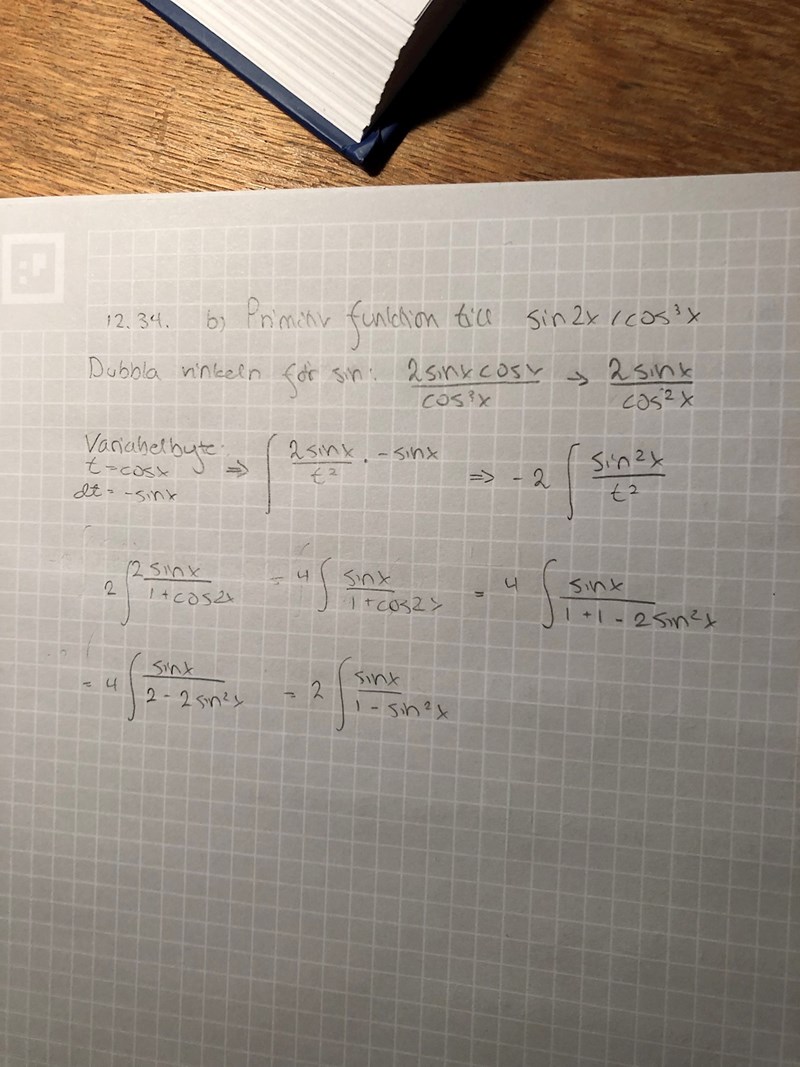 12.34. b) Primitiv funktion till sin2x / cos³x
Dubbla vinkeln för sin: 2sinxcosx / cos³x → 2 sinx / cos²x
Variabelbyte:
t = cosx ⇒ ∫ 2 sinx / t² · -sinx ⇒ -2 ∫ sin²x / t²
dt = -sinx
2 ∫ 2 sinx / 1+cos2x = 4 ∫ sinx / 1+cos2x = 4 ∫ sinx / 1+1-2sin²x
= 4 ∫ sinx / 2-2sin²x = 2 ∫ sinx / 1-sin²x